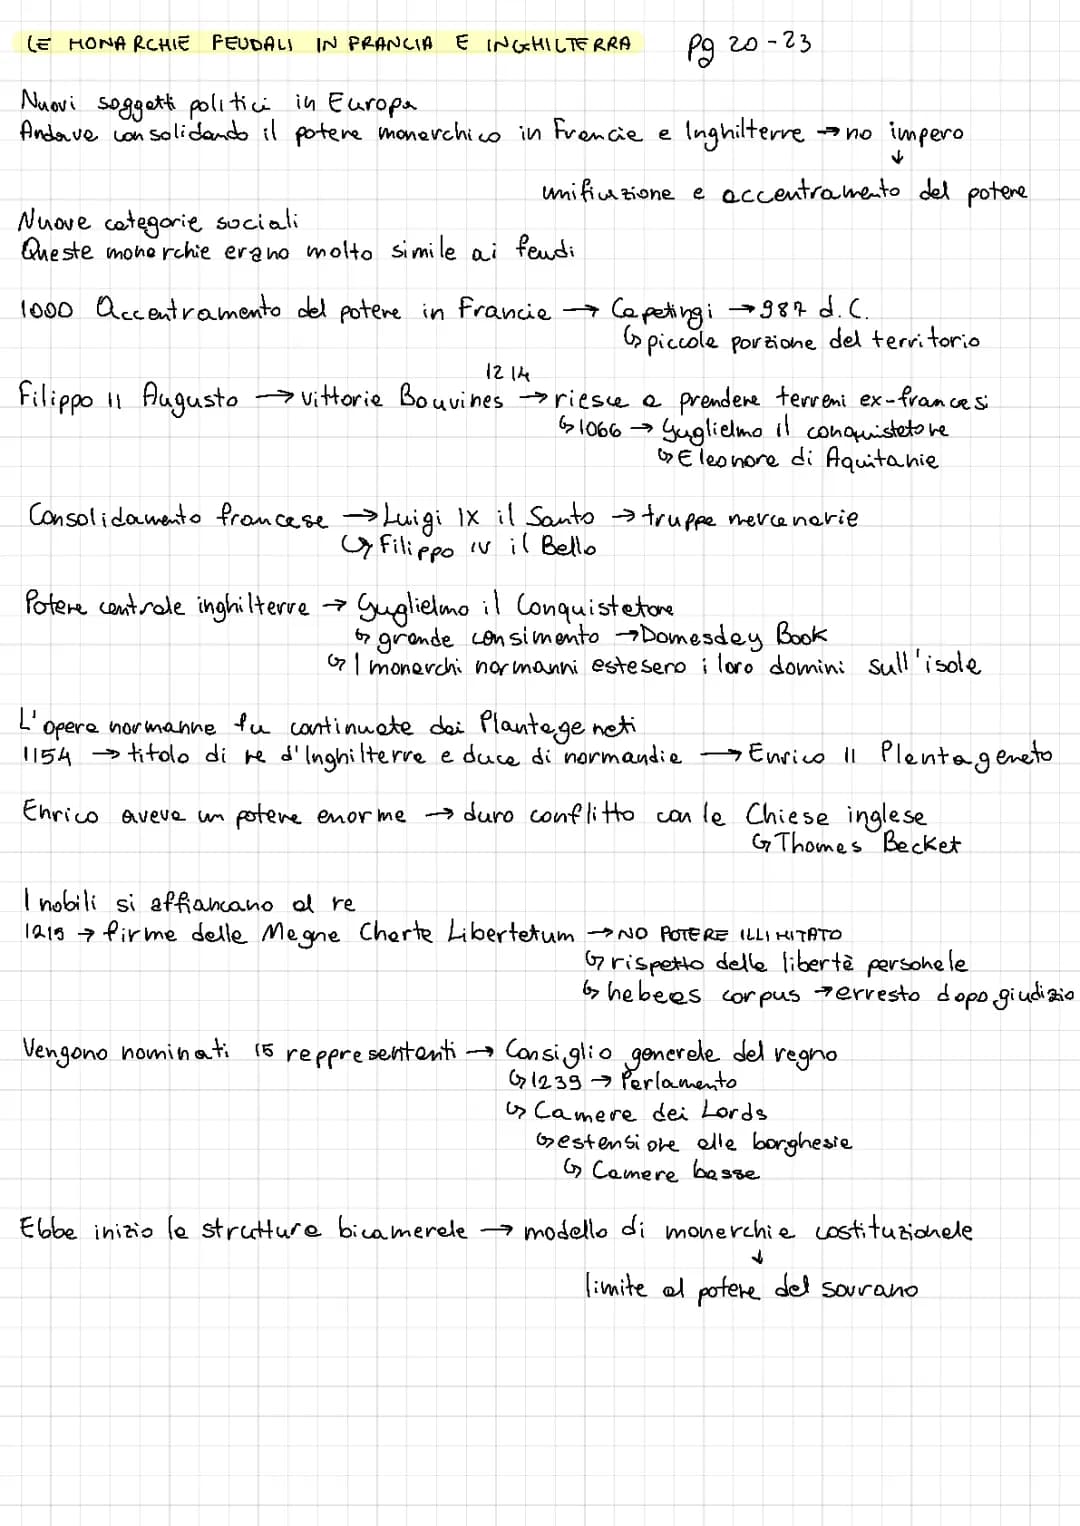 LE MONARCHIE FEUDALI IN FRANCIA E INGHILTERRA pg 20-23
Nuovi soggetti politici in Europa
Andava consolidando il potere monarchico in Francia e Inghilterra → no impero
↓
unificazione e accentramento del potere
Nuove categorie sociali
Queste monarchie erano molto simile ai feudi
1000 Accentramento del potere in Francia → Capetingi → 987 d.C.
↳ piccola porzione del territorio
1214
Filippo II Augusto → vittoria Bouvines → riesce a prendere terreni ex-francesi
↳ 1066 → Guglielmo il conquistatore
↳ Eleonora di Aquitania
Consolidamento francese → Luigi IX il Santo → truppe mercenarie
↳ Filippo IV il Bello
Potere centrale inghilterra → Guglielmo il Conquistatore
↳ grande consimento → Domesday Book
↳ I monarchi normanni estesero i loro domini sull'isola
L'opera normanna fu continuata dai Plantageneti
1154 → titolo di re d'Inghilterra e duca di normandia → Enrico II Plantageneto
Enrico aveva un potere enorme → duro conflitto con la Chiesa inglese
↳ Thomas Becket
I nobili si affiancano al re
1215 → firma della Magna Charta Libertatum → NO POTERE ILLIMITATO
↳ rispetto della libertà personale
↳ habeas corpus → arresto dopo giudizio
Vengono nominati 15 reppresentanti → Consiglio generale del regno
↳ 1239 → Parlamento
↳ Camera dei Lords
↳ estensione alla borghesia
↳ Camera bassa
Ebbe inizio la struttura bicamerale → modello di monarchia costituzionale
↓
limite al potere del sovrano